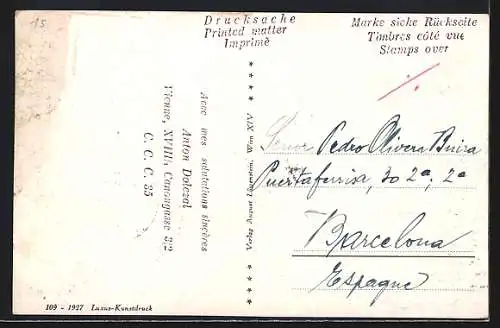 15
Drucksache
Printed matter
Imprimé
Marke siehe Rückseite
Timbres côté vue
Stamps over
Avec mes salutations sincères
Anton Dolezal
Vienne, XVIII. Canongasse 3/2
C. C. C. 35
Verlag August Wien XIV
Senor Pedro Olivera
Puertaferrisa, 30 2º, 2ª
Barcelona
Espagne
109 - 1927 Luxus-Kunstdruck